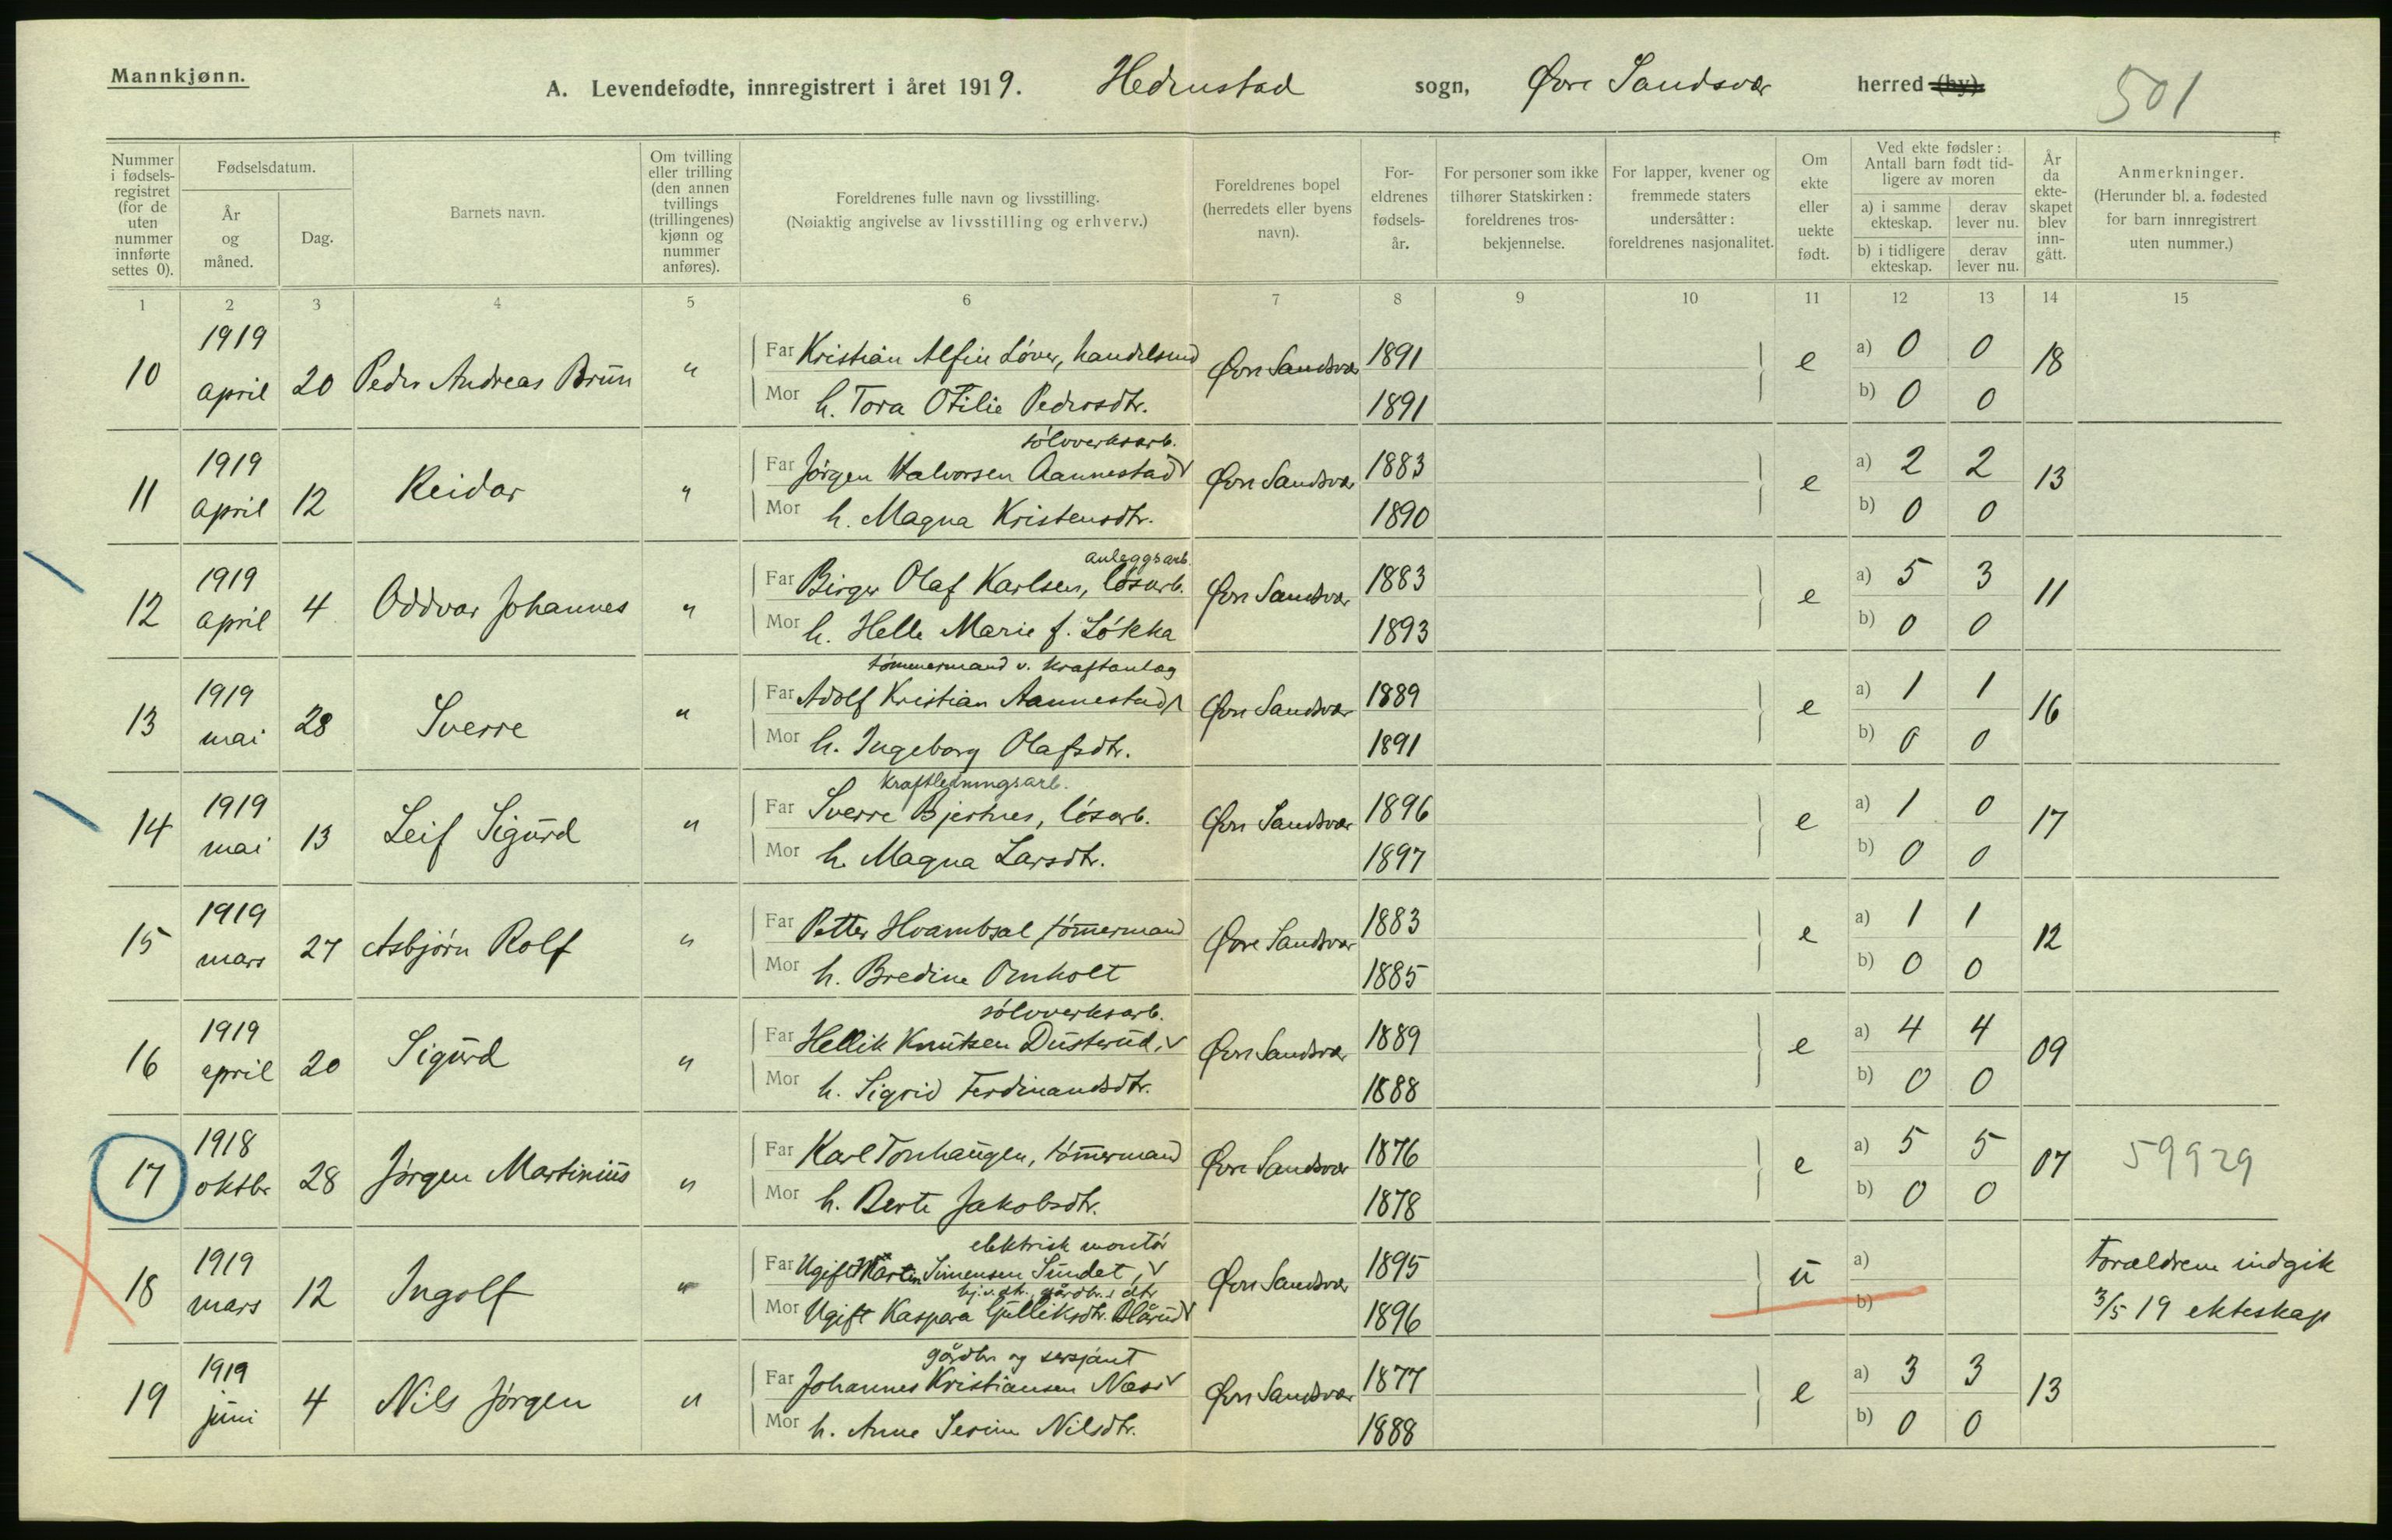 Mannkjønn.
A. Levendefødte, innregistrert i året 1919. Hedenstad sogn, Øvre Sandsvær herred (by).
501
Nummer i fødsels-registret (for de uten nummer innførte settes 0).
Fødselsdatum.
År og måned.
Dag.
Barnets navn.
Om tvilling eller trilling (den annen tvillings (trillingenes) kjønn og nummer anføres).
Foreldrenes fulle navn og livsstilling.
(Nøiaktig angivelse av livsstilling og erhverv.)
Foreldrenes bopel (herredets eller byens navn).
For-eldrenes fødsels-år.
For personer som ikke tilhører Statskirken: foreldrenes tros-bekjennelse.
For lapper, kvener og fremmede staters undersåtter: foreldrenes nasjonalitet.
Om ekte eller uekte født.
Ved ekte fødsler: Antall barn født tid-ligere av moren
a) i samme ekteskap.
derav lever nu.
b) i tidligere ekteskap.
derav lever nu.
År da ekte-skapet blev inn-gått.
Anmerkninger.
(Herunder bl. a. fødested for barn innregistrert uten nummer.)
1 2 3 4 5 6 7 8 9 10 11 12 13 14 15
10 1919 april 20 Peder Andreas Brun " Far Kristian Alfin Løver, handelsmd Øvre Sandsvær 1891 e a) 0 0 18
Mor h. Tora Otilie Pedersdtr. 1891 b) 0 0
sølvverksarb.
11 1919 april 12 Reidar " Far Jørgen Halvorsen Aannestad v Øvre Sandsvær 1883 e a) 2 2 13
Mor h. Magna Kristensdtr. 1890 b) 0 0
anleggsarb.
12 1919 april 4 Oddvar Johannes " Far Birger Olaf Karlsen, løsarb. Øvre Sandsvær 1883 e a) 5 3 11
Mor h. Helle Marie f. Løkka 1893 b) 0 0
tømmermand v. kraftanlæg
13 1919 mai 28 Sverre " Far Adolf Kristian Aannestad Øvre Sandsvær 1889 e a) 1 1 16
Mor h. Ingeborg Olafsdtr. 1891 b) 0 0
kraftledningsarb.
14 1919 mai 13 Leif Sigurd " Far Sverre Bjertnes, løsarb. Øvre Sandsvær 1896 e a) 1 0 17
Mor h. Magna Larsdtr. 1897 b) 0 0
15 1919 mars 27 Asbjørn Rolf " Far Petter Hvambsal tømmermand Øvre Sandsvær 1883 e a) 1 1 12
Mor h. Bredine Omholt 1885 b) 0 0
sølvverksarb.
16 1919 april 20 Sigurd " Far Hellik Knutsen Dusterud, v Øvre Sandsvær 1889 e a) 4 4 09
Mor h. Sigrid Ferdinandsdtr. 1888 b) 0 0
17 1918 oktbr 28 Jørgen Martinius " Far Karl Tonhaugen, tømmermand Øvre Sandsvær 1876 e a) 5 5 07 59929
Mor h. Berte Jakobsdtr. 1878 b) 0 0
elektrisk montør
18 1919 mars 12 Ingolf " Far Ugift Marten Simensen Sundet, v Øvre Sandsvær 1895 u a) Forældrene indgik
hj.v. dtr., gårdbr.s dtr
Mor Ugift Kaspara Gulliksdtr. Blårud v 1896 b) 3/5 19 ekteskap
gårdbr og sersjant
19 1919 juni 4 Nils Jørgen " Far Johannes Kristiansen Næss v Øvre Sandsvær 1877 e a) 3 3 13
Mor h. Anne Serine Nilsdtr. 1888 b) 0 0